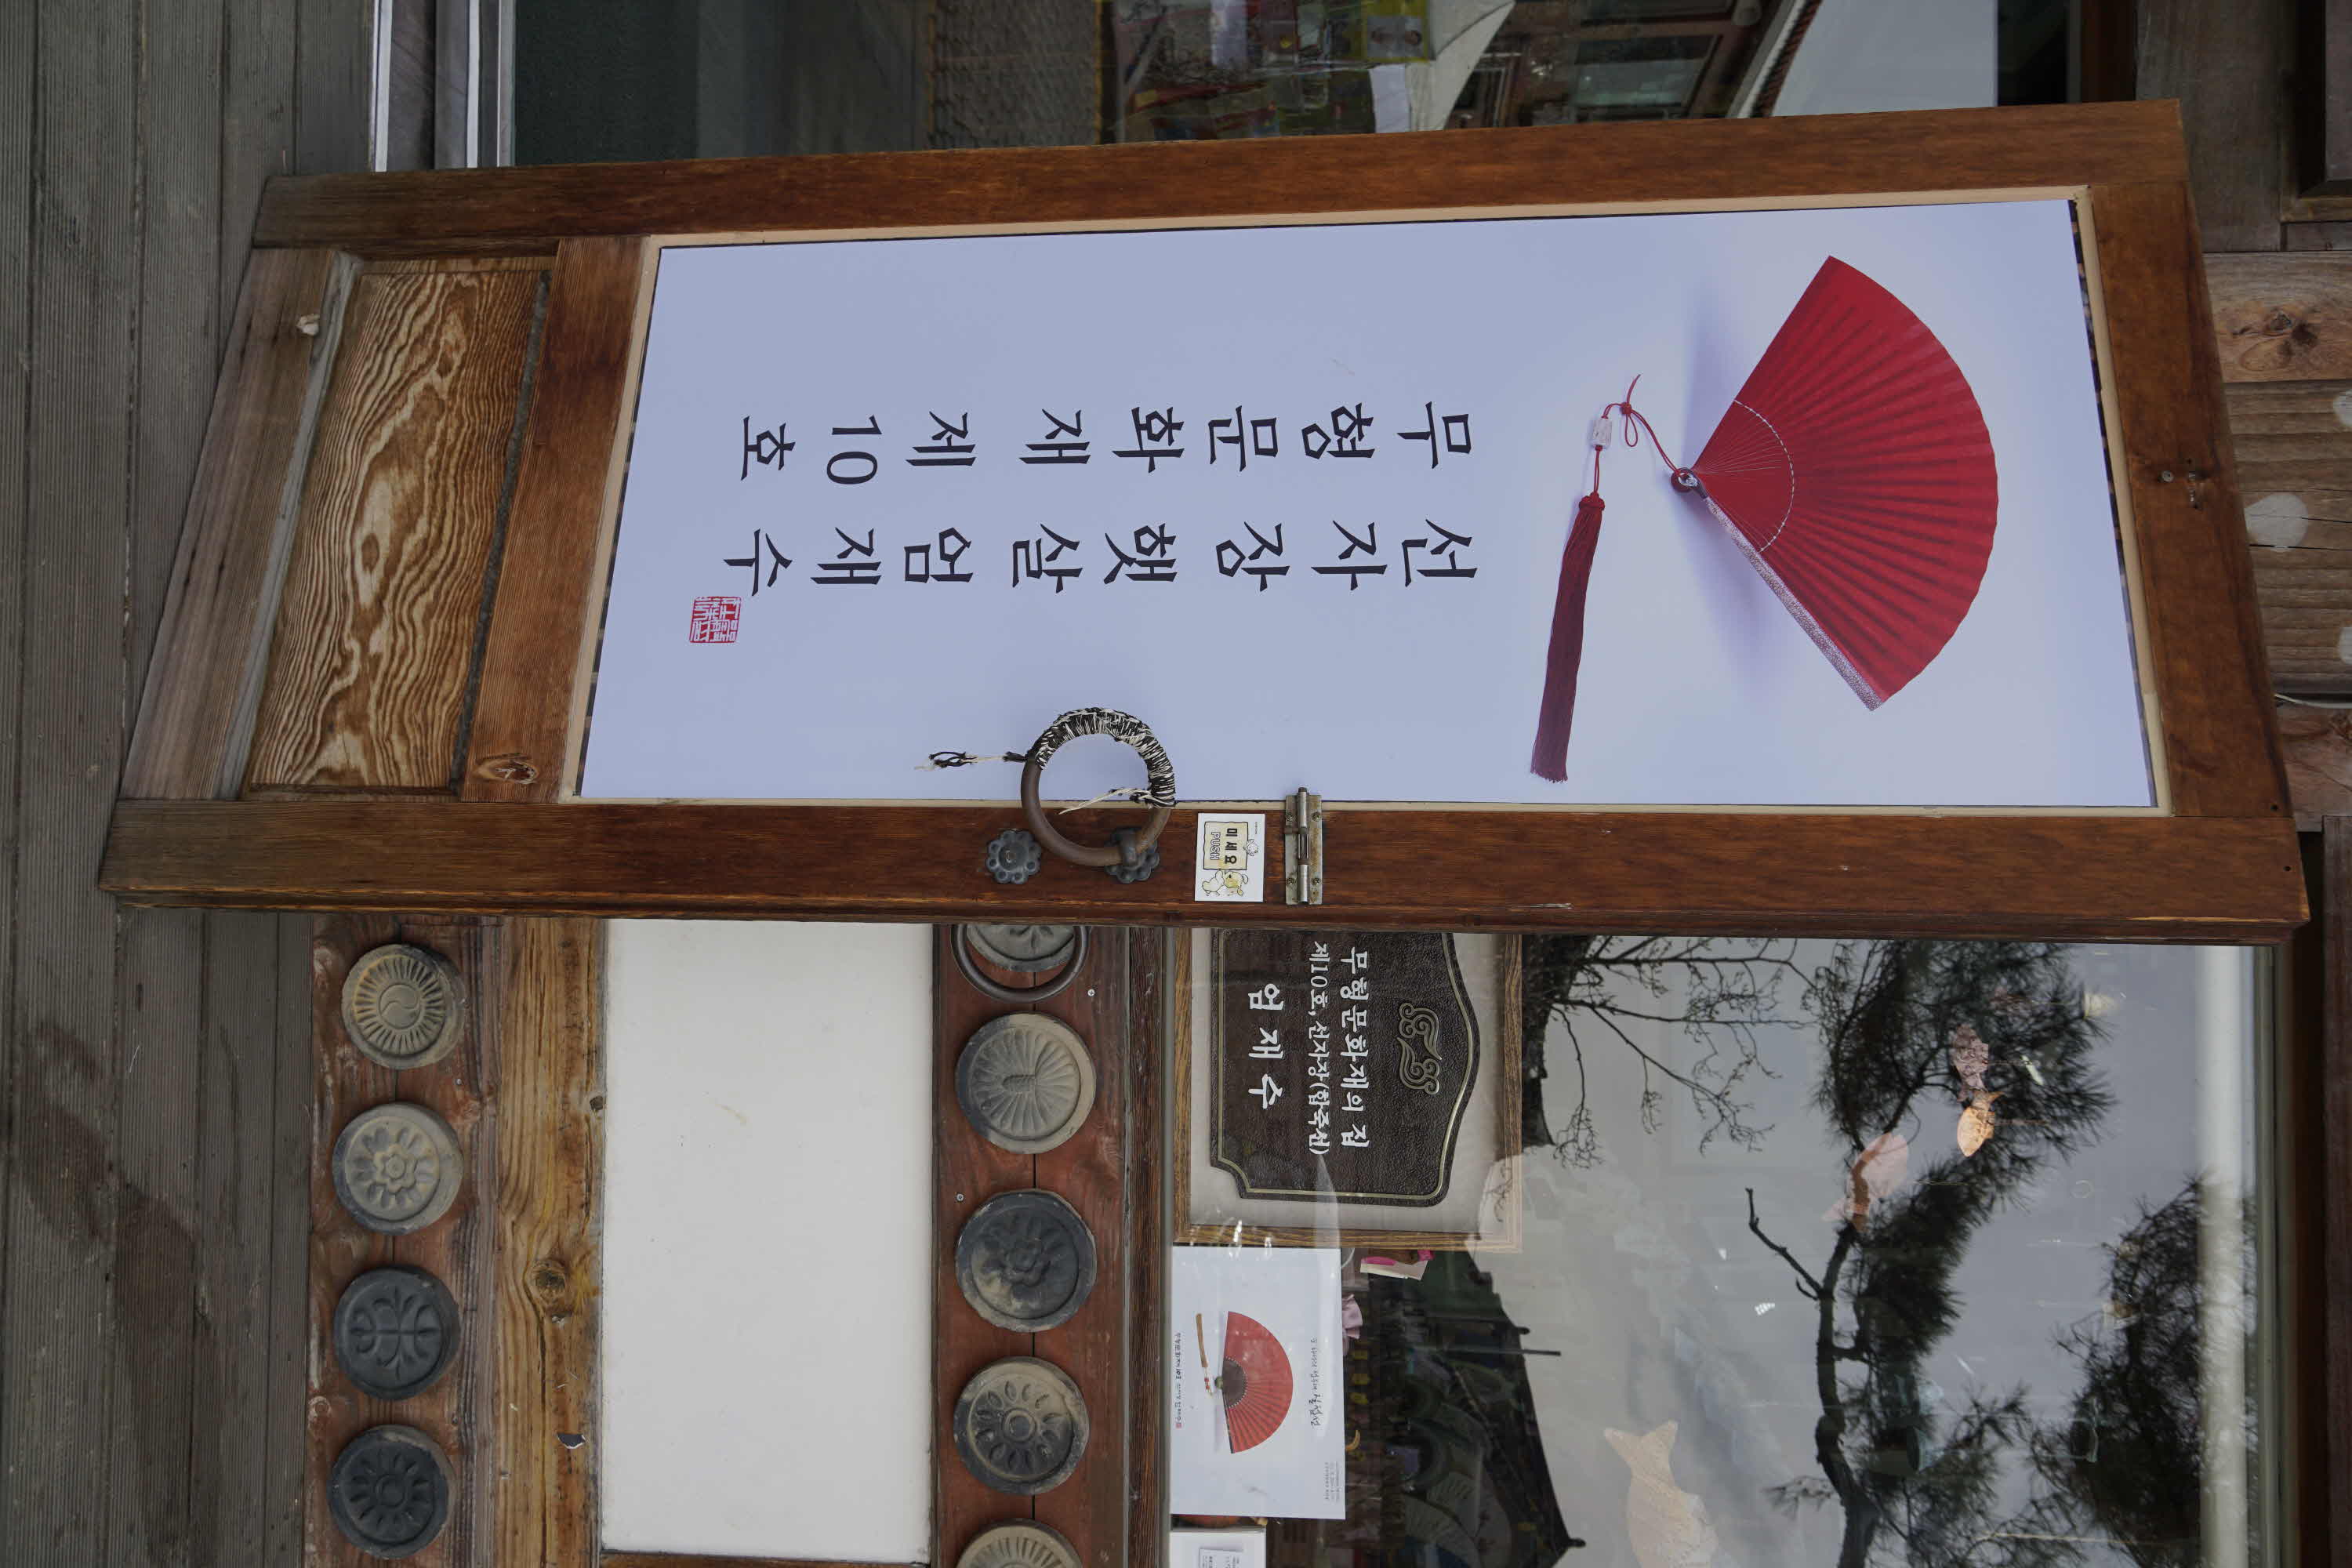 무형문화재 제10호
선자장 햇살 엄재수
미세요
PUSH
무형문화재의 집
제10호, 선자장(합죽선)
엄재수